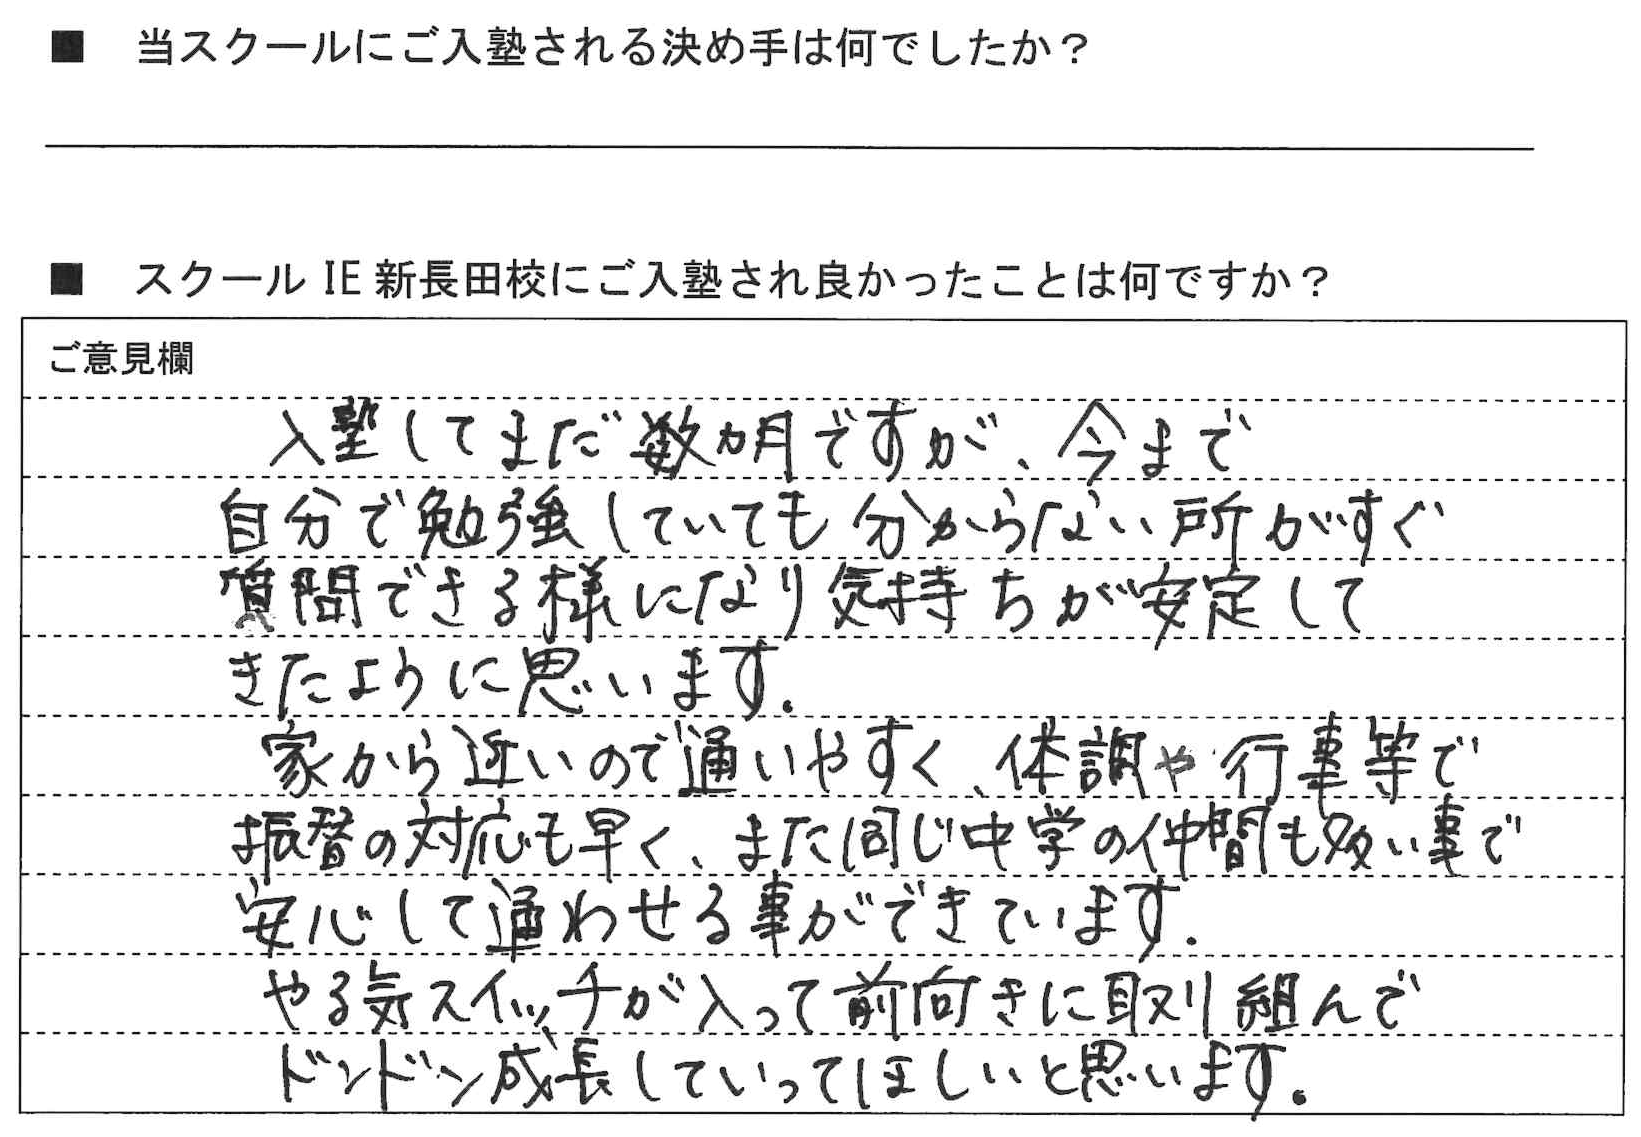 ■ 当スクールにご入塾される決め手は何でしたか？
■ スクール IE 新長田校にご入塾され良かったことは何ですか？
ご意見欄
入塾してまだ数ヵ月ですが、今まで
自分で勉強していても分からない所がすぐ
質問できる様になり気持ちが安定して
きたように思います.
家から近いので通いやすく、体調や行事等で
振替の対応も早く、また同じ中学の仲間も多い事で
安心して通わせる事ができています.
やる気スイッチが入って前向きに取り組んで
ドンドン成長していってほしいと思います.